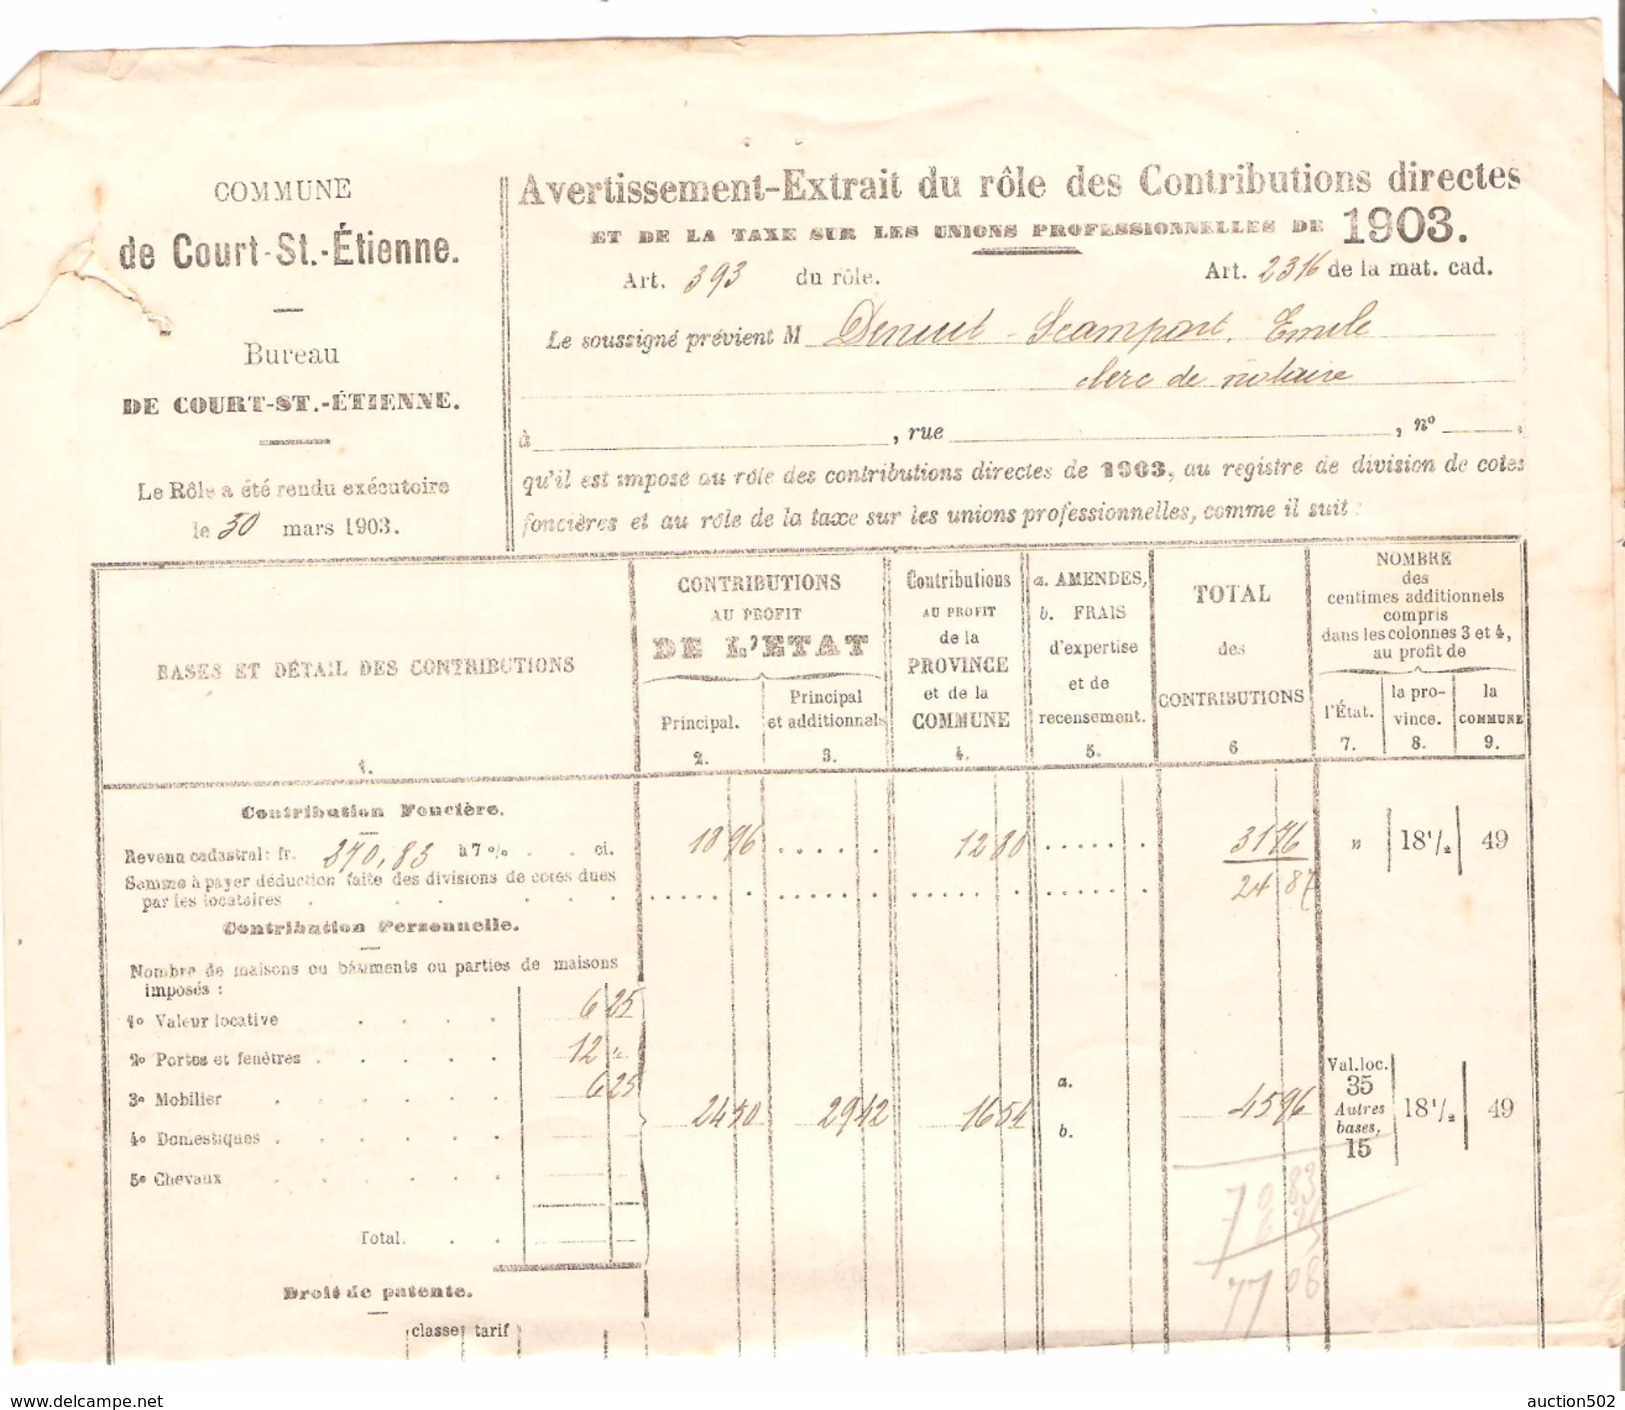 COMMUNE
de Court-St.-Étienne.
Bureau
DE COURT-ST.-ÉTIENNE.
Le Rôle a été rendu exécutoire
le 30 mars 1903.
Avertissement-Extrait du rôle des Contributions directes
ET DE LA TAXE SUR LES UNIONS PROFESSIONNELLES DE 1903.
Art. 393 du rôle. Art. 2316 de la mat. cad.
Le soussigné prévient M Emile
clerc de notaire
à , rue , nº ,
qu'il est imposé au rôle des contributions directes de 1903, au registre de division de cotes
foncières et au rôle de la taxe sur les unions professionnelles, comme il suit :
BASES ET DÉTAIL DES CONTRIBUTIONS
1.
CONTRIBUTIONS
AU PROFIT
DE L'ETAT
Principal.
2.
Principal
et additionnels
3.
Contributions
AU PROFIT
de la
PROVINCE
et de la
COMMUNE
4.
a. AMENDES,
b. FRAIS
d'expertise
et de
recensement.
5.
TOTAL
des
CONTRIBUTIONS
6
NOMBRE
des
centimes additionnels
compris
dans les colonnes 3 et 4,
au profit de
l'État.
7.
la pro-
vince.
8.
la
COMMUNE
9.
Contribution Foncière.
Revenu cadastral: fr. 270,83 à 7 % . . ci. 18 96 12 80 31 76 " 18 1/2 49
Somme à payer déduction faite des divisions de cotes dues
par les locataires 24 87
Contribution Personnelle.
Nombre de maisons ou bâtiments ou parties de maisons
imposés :
1º Valeur locative 6 25
2º Portes et fenêtres 12 "
3º Mobilier 6 25
24 50 29 42 16 54 a. b. 45 96
Val. loc.
35
Autres
bases,
15
18 1/2 49
4º Domestiques
5º Chevaux
70 83
6 25
77 08
Total.
Droit de patente.
classe tarif
www.delcampe.net
auction502